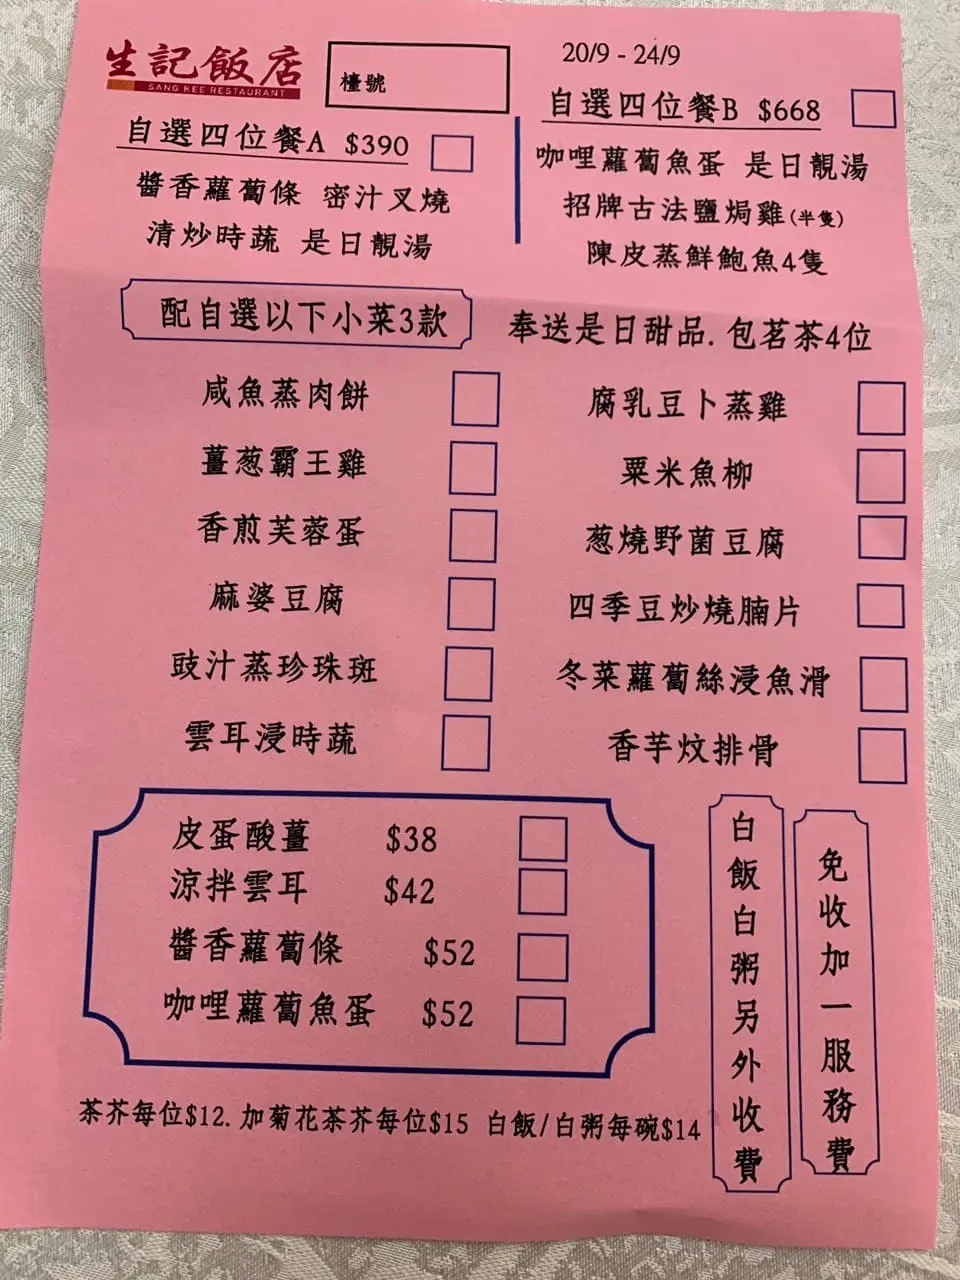 生記飯店
SANG KEE RESTAURANT
檯號
20/9 - 24/9
自選四位餐A $390
醬香蘿蔔條 密汁叉燒
清炒時蔬 是日靚湯
自選四位餐B $668
咖哩蘿蔔魚蛋 是日靚湯
招牌古法鹽焗雞(半隻)
陳皮蒸鮮鮑魚4隻
配自選以下小菜3款
奉送是日甜品. 包茗茶4位
咸魚蒸肉餅
腐乳豆卜蒸雞
薑葱霸王雞
粟米魚柳
香煎芙蓉蛋
葱燒野菌豆腐
麻婆豆腐
四季豆炒燒腩片
豉汁蒸珍珠斑
冬菜蘿蔔絲浸魚滑
雲耳浸時蔬
香芋炆排骨
皮蛋酸薑 $38
涼拌雲耳 $42
醬香蘿蔔條 $52
咖哩蘿蔔魚蛋 $52
白飯白粥另外收費
免收加一服務費
茶芥每位$12. 加菊花茶芥每位$15 白飯/白粥每碗$14